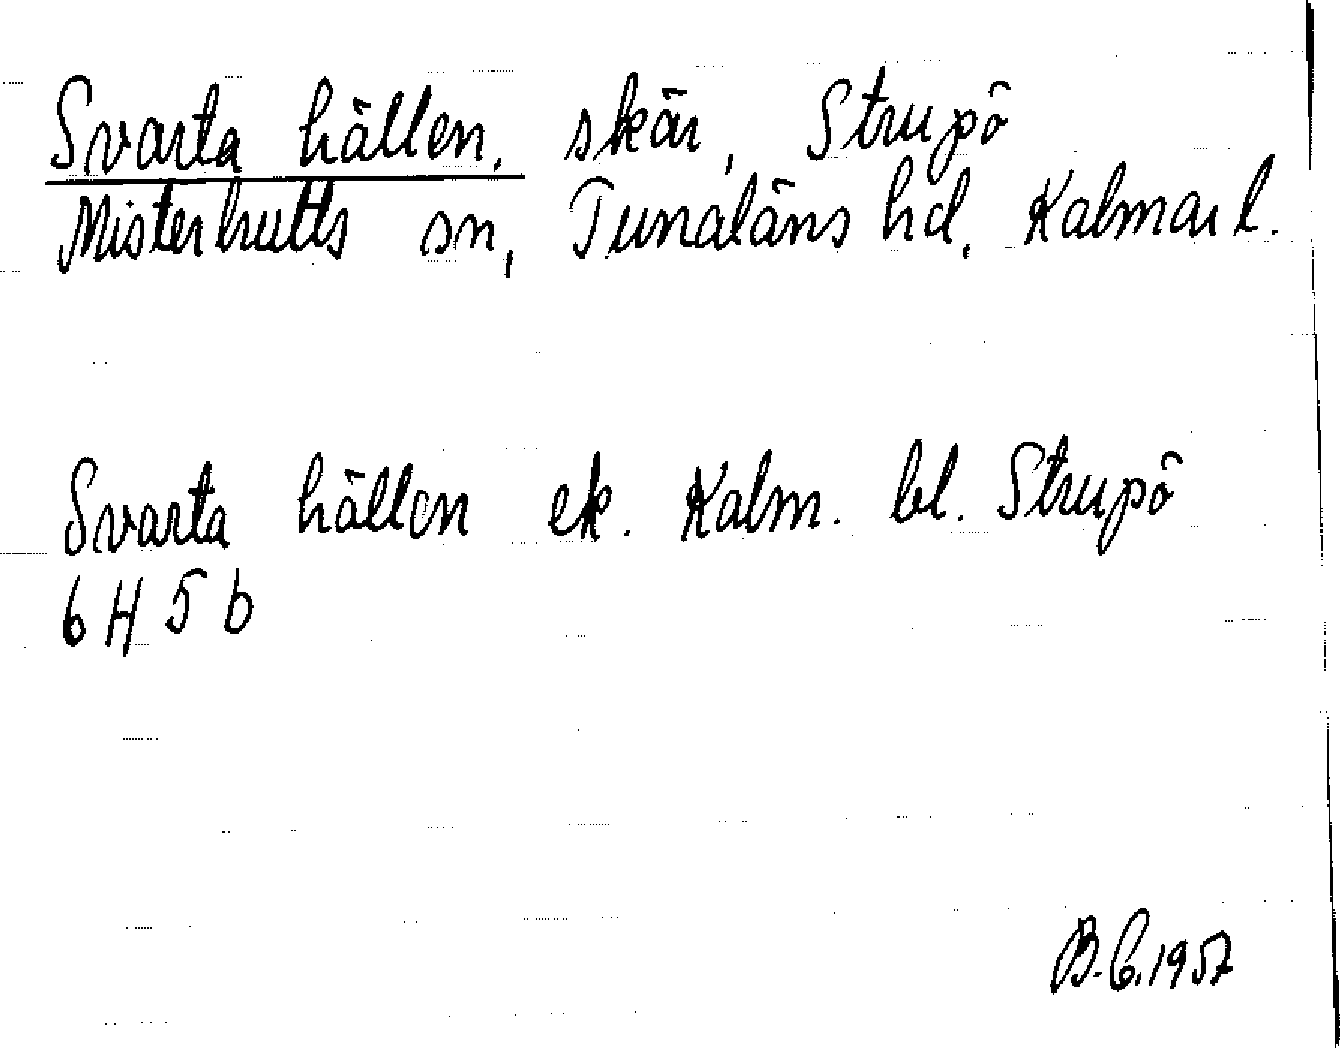 Svarta hällen, skär, Strupö
Misterhults sn, Tunaläns hd, Kalmar l.
Svarta hällen ek. Kalm. bl. Strupö
6 H 5 b
B.C. 1957